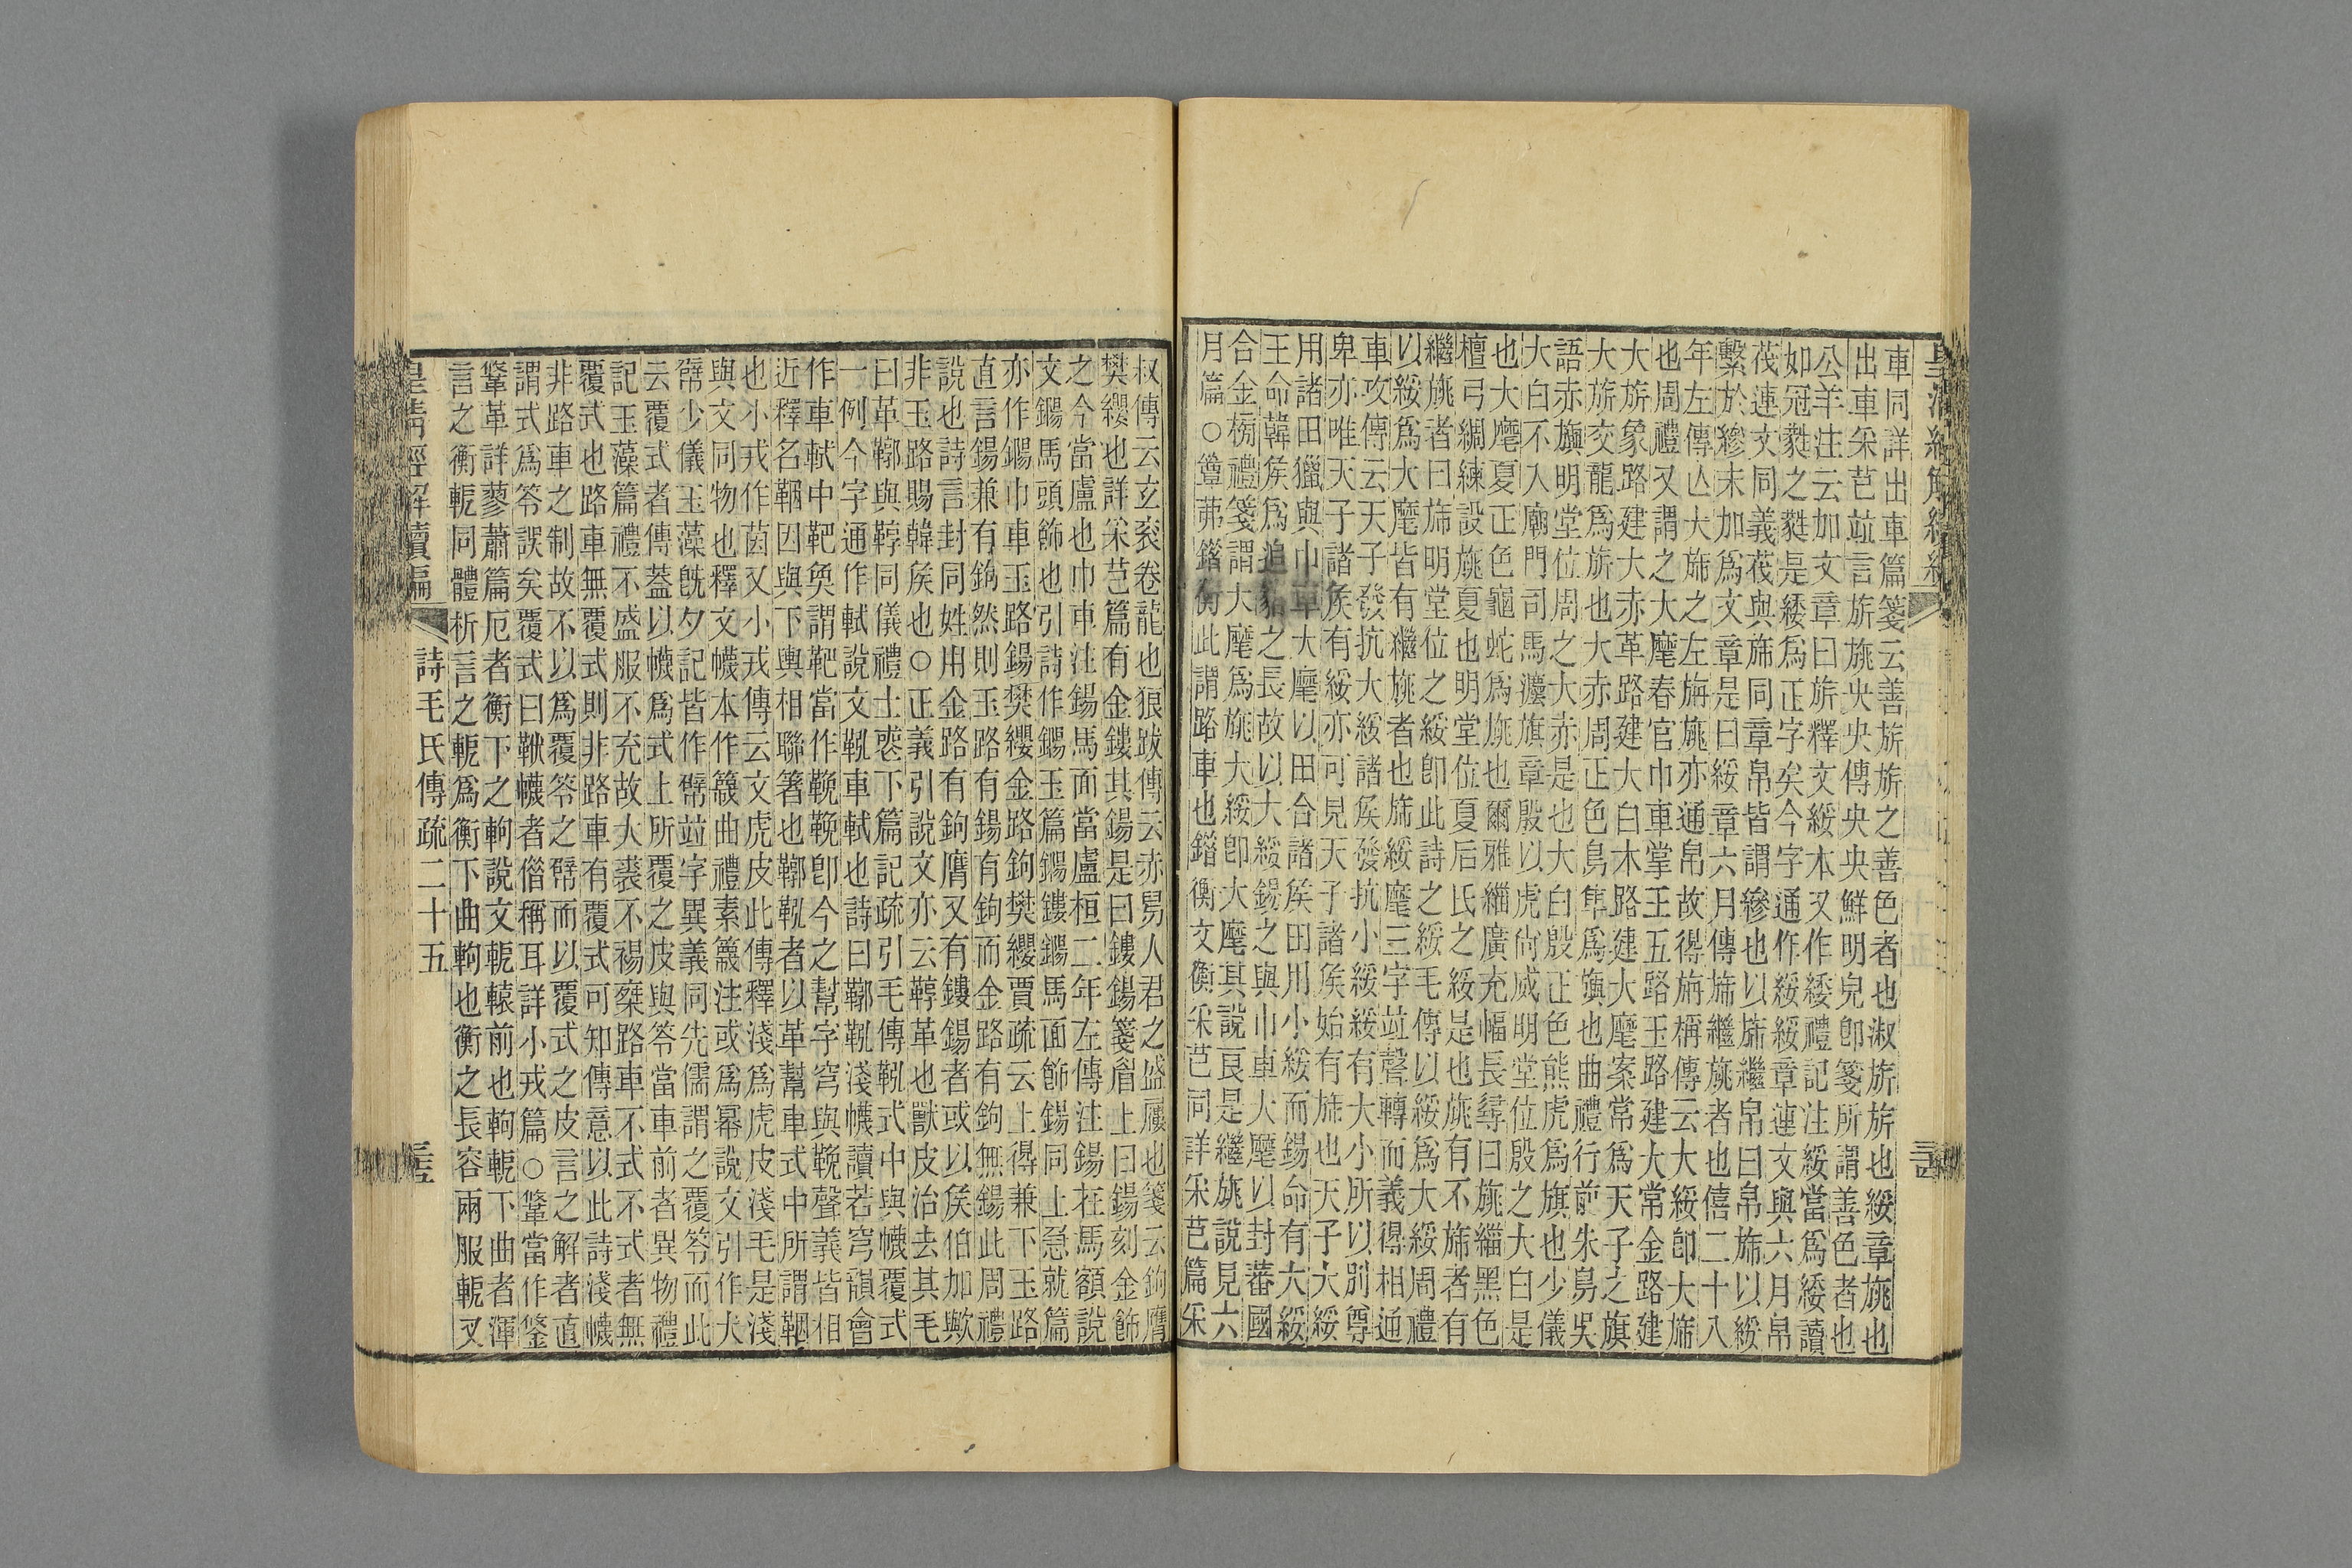 車同詳出車篇箋云善旂旂之善色者也淑旂旂也綏章旐也
出車采芑竝言旂旐央央傳央央鮮明皃卽箋所謂善色者也
公羊注云加文章曰旂釋文綏本又作緌禮記注綏當爲緌讀
如冠蕤之蕤是緌爲正字矣今字通作綏綏章連文與六月帛
茷連文同義茷與旆同章帛皆謂縿也以旆繼帛曰帛旆以綏
繫於縿末加爲文章是曰綏章六月傳旆繼旐者也僖二十八
年左傳亾大旆之左旃旐亦通帛故得旃稱傳云大綏卽大旆
也周禮又謂之大麾春官巾車掌王五路玉路建大常金路建
大旂象路建大赤革路建大白木路建大麾案常爲天子之旗
大旂交龍爲旂也大赤周正色鳥隼爲旟也曲禮行前朱鳥吳
語赤旟明堂位周之大赤是也大白殷正色熊虎爲旗也少儀
大白不入廟門司馬灋旗章殷以虎尙威明堂位殷之大白是
也大麾夏正色龜蛇爲旐也爾雅緇廣充幅長尋曰旐緇黑色
檀弓綢練設旐夏也明堂位夏后氏之綏是也旐有不旆者有
繼旐者曰旆明堂位之綏卽此詩之綏毛傳以綏爲大綏周禮
以綏爲大麾皆有繼旐者也旆綏麾三字竝聲轉而義得相通
車攻傳云天子發抗大綏諸矦發抗小綏綏有大小所以別尊
卑亦唯天子諸矦有綏亦可見天子諸矦始有旆也天子大綏
用諸田獵與巾車大麾以田合諸矦田用小綏而錫命有大綏
王命韓矦爲追貊之長故以大綏錫之與巾車大麾以封蕃國
合金榜禮箋謂大麾爲旐大綏卽大麾其說良是繼旐說見六
月篇○簟茀錯衡此謂路車也錯衡文衡采芑同詳采芑篇采
叔傳云玄袞卷龍也狼跋傳云赤舄人君之盛屨也箋云鉤膺
樊纓也詳采芑篇有金鏤其鍚是曰鏤鍚箋眉上曰鍚刻金飾
之今當盧也巾車注鍚馬面當盧桓二年左傳注鍚在馬額說
文鐊馬頭飾也引詩作鐊玉篇鐊鏤鐊馬面飾鍚同上急就篇
亦作鐊巾車玉路鍚樊纓金路鉤樊纓賈疏云上得兼下玉路
直言鍚兼有鉤然則玉路有鍚有鉤而金路有鉤無鍚此周禮
說也詩言封同姓用金路有鉤膺又有鏤鍚者或以矦伯加歟
非玉路賜韓矦也○正義引說文亦云鞹革也獸皮治去其毛
曰革鞹與鞟同儀禮士喪下篇記疏引毛傳鞃式中與幭覆式
一例今字通作軾說文鞃車軾也詩曰鞹鞃淺幭讀若穹韻會
作車軾中靶奐謂靶當作鞔鞔卽今之幫字穹與鞔聲義皆相
近釋名鞇因與下輿相聯著也鞹鞃者以革幫車式中所謂鞇
也小戎作茵又小戎傳云文虎皮此傳釋淺爲虎皮淺毛是淺
與文同物也釋文幭本作簚曲禮素簚注或爲冪說文引作犬
幦少儀玉藻旣夕記皆作幦竝字異義同先儒謂之覆笭而此
云覆式者傳蓋以幭爲式上所覆之皮與笭當車前者異物禮
記玉藻篇禮不盛服不充故大裘不裼椉路車不式不式者無
覆式也路車無覆式則非路車有覆式可知傳意以此詩淺幭
非路車之制故不以爲覆笭之幦而以覆式之皮言之解者直
謂式爲笭誤矣覆式曰鞎幭者偕稱耳詳小戎篇○鞶當作鋚
鞶革詳蓼蕭篇厄者衡下之軥說文軶轅前也軥軶下曲者渾
言之衡軶同體析言之軶爲衡下曲軥也衡之長容兩服軶又
皇淸經解續編
詩毛氏傳疏二十五
三五